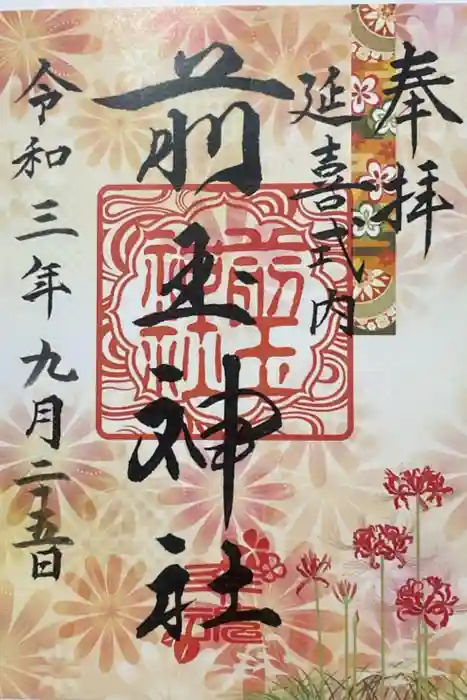 奉拝
延喜式内
前玉神社
前玉
神社
令和三年九月二十五日